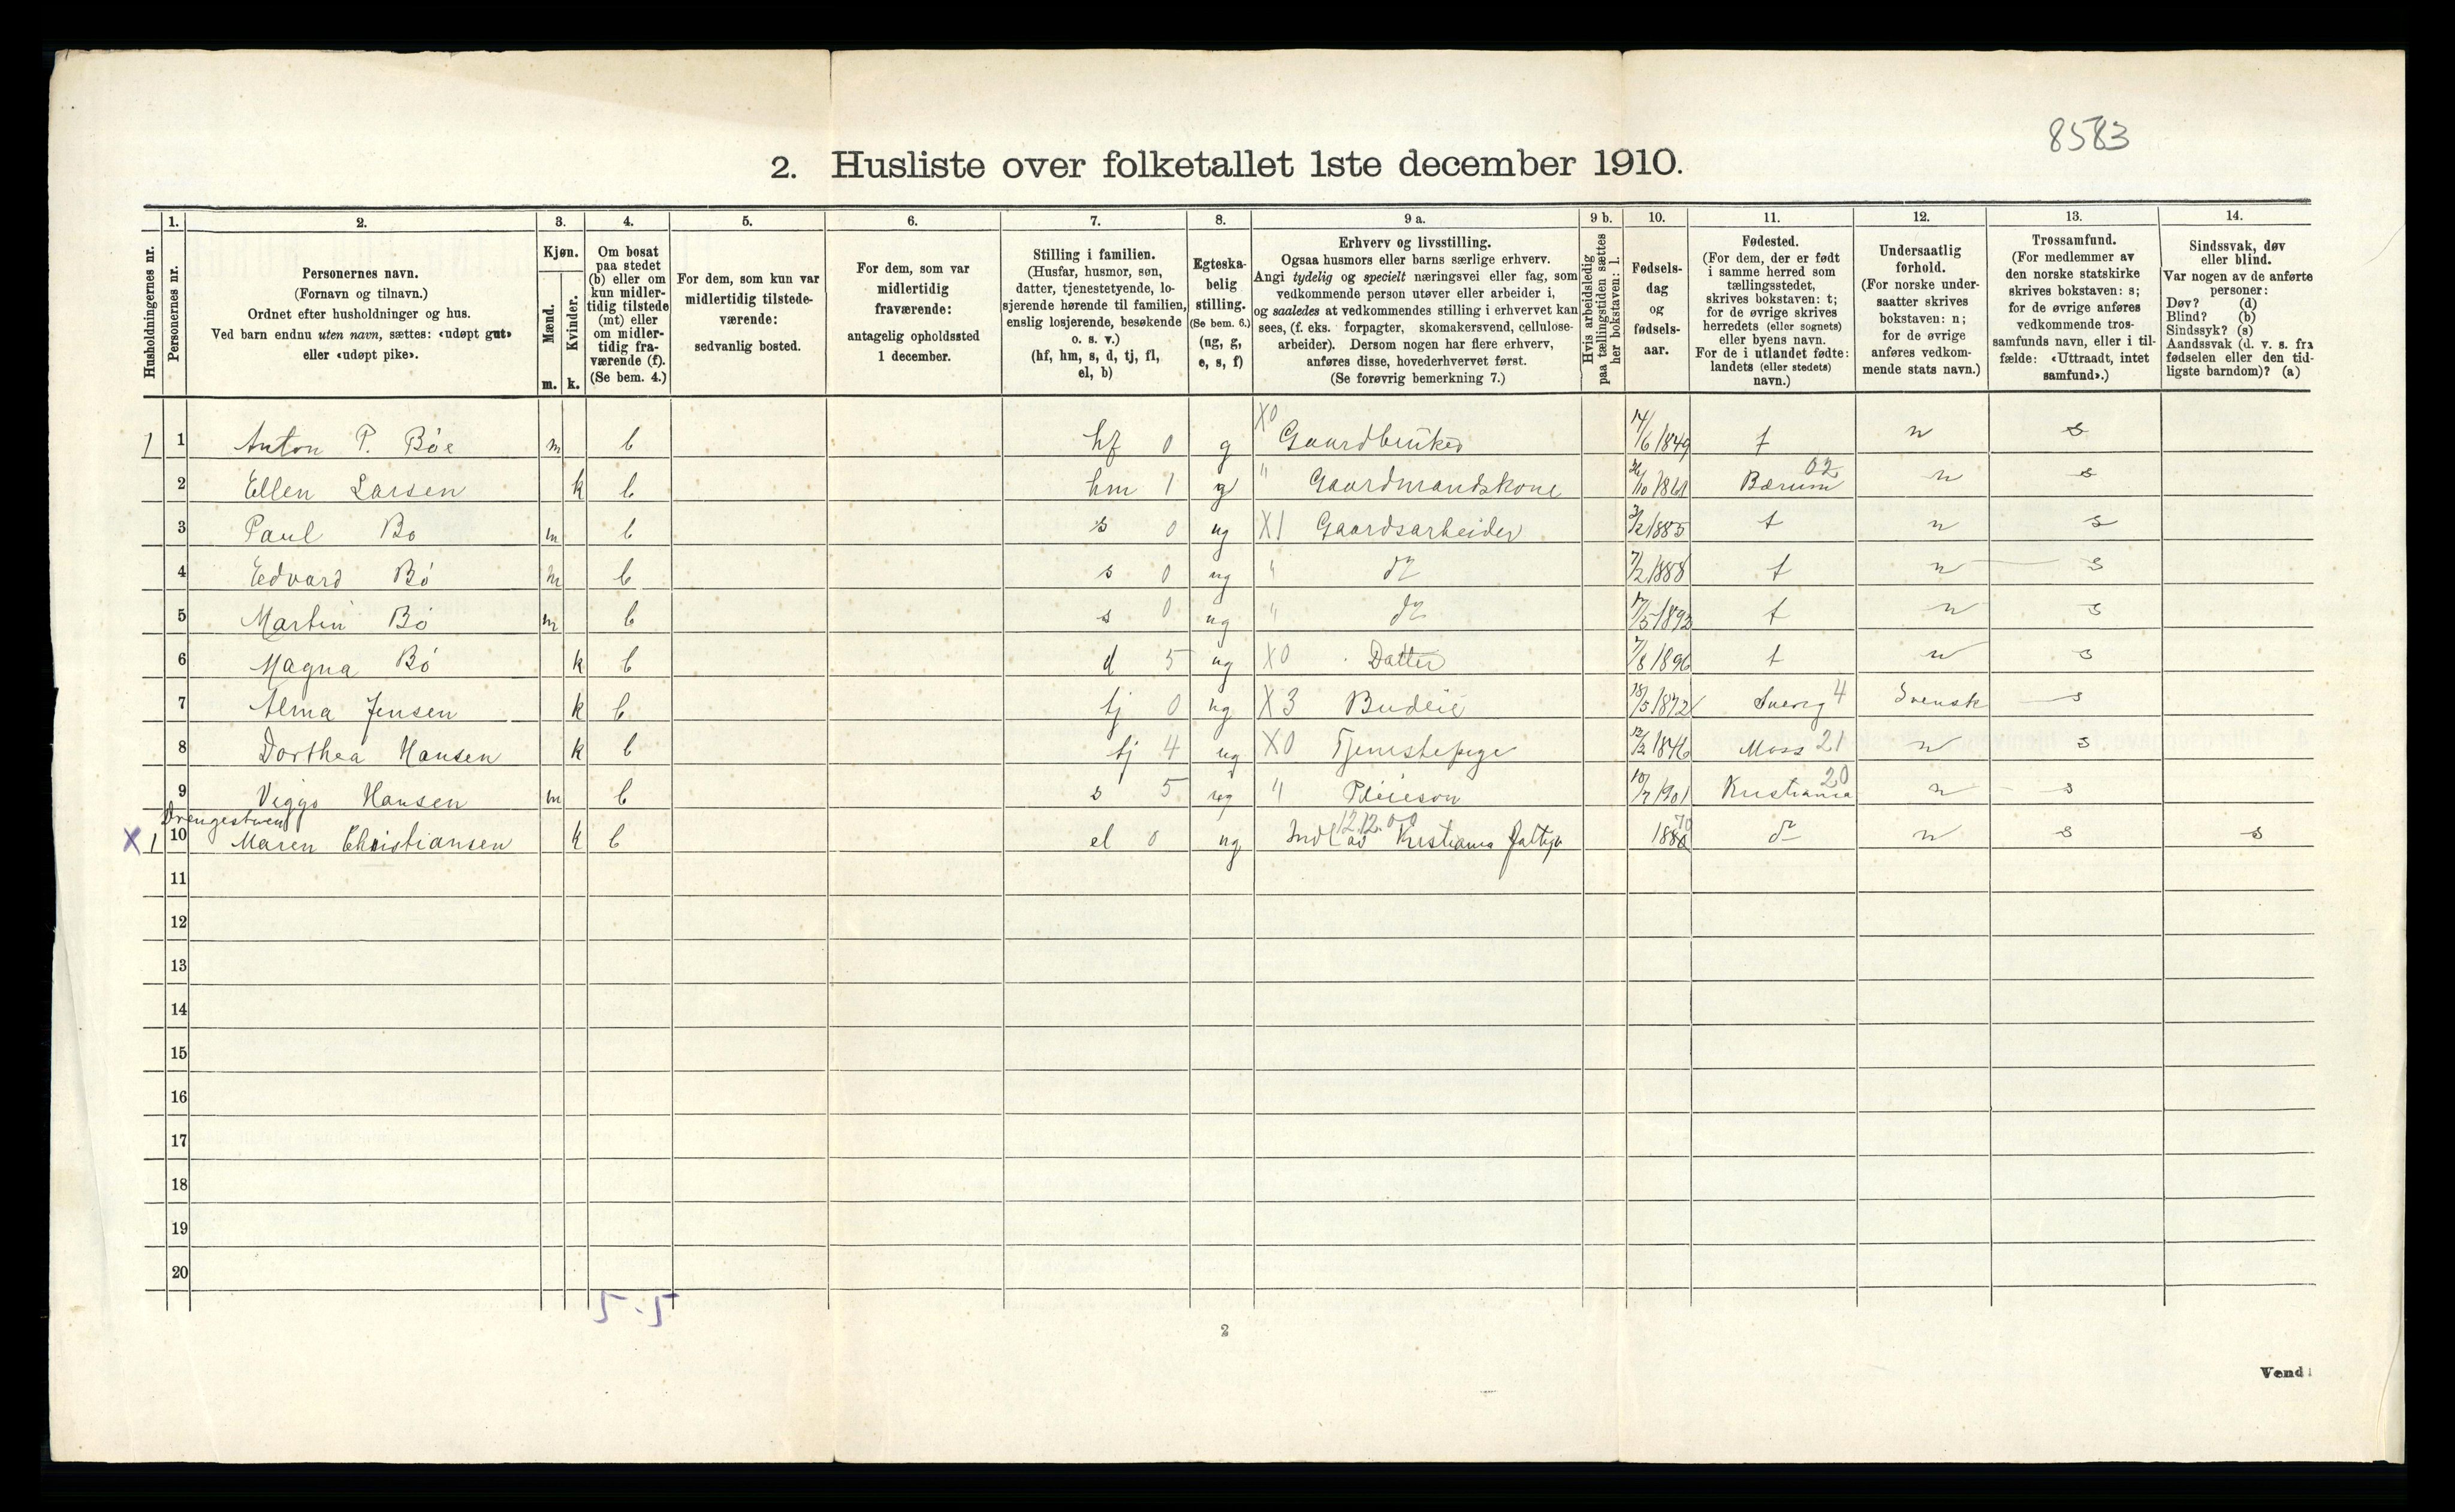 8583
2. Husliste over folketallet 1ste december 1910.
Husholdningernes nr.
1.
Personernes nr.
2.
Personernes navn.
(Fornavn og tilnavn.)
Ordnet efter husholdninger og hus.
Ved barn endnu uten navn, sættes: «udøpt gut»
eller «udøpt pike».
3.
Kjøn.
Mænd.
Kvinder.
m. k.
4.
Om bosat
paa stedet
(b) eller om
kun midler-
tidig tilstede
(mt) eller
om midler-
tidig fra-
værende (f).
(Se bem. 4.)
5.
For dem, som kun var
midlertidig tilstede-
værende:
sedvanlig bosted.
6.
For dem, som var
midlertidig
fraværende:
antagelig opholdssted
1 december.
7.
Stilling i familien.
(Husfar, husmor, søn,
datter, tjenestetyende, lo-
sjerende hørende til familien,
enslig losjerende, besøkende
o. s. v.)
(hf, hm, s, d, tj, fl,
el, b)
8.
Egteska-
belig
stilling.
(Se bem. 6.)
(ug, g,
e, s, f)
9 a.
Erhverv og livsstilling.
Ogsaa husmors eller barns særlige erhverv.
Angi tydelig og specielt næringsvei eller fag, som
vedkommende person utøver eller arbeider i,
og saaledes at vedkommendes stilling i erhvervet kan
sees, (f. eks. forpagter, skomakersvend, cellulose-
arbeider). Dersom nogen har flere erhverv,
anføres disse, hovederhvervet først.
(Se forøvrig bemerkning 7.)
9 b.
Hvis arbeidsledig
paa tællingstiden sættes
her bokstaven: l.
10.
Fødsels-
dag
og
fødsels-
aar.
11.
Fødested.
(For dem, der er født
i samme herred som
tællingsstedet,
skrives bokstaven: t;
for de øvrige skrives
herredets (eller sognets)
eller byens navn.
For de i utlandet fødte:
landets (eller stedets)
navn.)
12.
Undersaatlig
forhold.
(For norske under-
saatter skrives
bokstaven: n;
for de øvrige
anføres vedkom-
mende stats navn.)
13.
Trossamfund.
(For medlemmer av
den norske statskirke
skrives bokstaven: s;
for de øvrige anføres
vedkommende tros-
samfunds navn, eller i til-
fælde: «Uttraadt, intet
samfund».)
14.
Sindssvak, døv
eller blind.
Var nogen av de anførte
personer:
Døv? (d)
Blind? (b)
Sindssyk? (s)
Aandssvak (d. v. s. fra
fødselen eller den tid-
ligste barndom)? (a)
1 1 Anton P. Böe m b hf 0 g X0 Gaardbruker 14/6 1849 t n s
2 Ellen Larsen k b hm 1 g " Gaardmandskone /10 1861 Bærum 02 n s
3 Paul Bö m b s 0 ug X1 Gaardsarbeider /2 1885 t n s
4 Edvard Bö m b s 0 ug " do 7/2 1888 t n s
5 Martin Bö m b s 0 ug " do 17/5 1892 t n s
6 Magna Bö k b d 5 ug X0 Datter 7/8 1896 t n s
7 Alma Jensen k b tj 0 ug X3 Budeie 18/5 1872 Sverig 4 Svensk s
8 Dorthea Hansen k b tj 4 ug X0 Tjenestepige 12/2 1846 Moss 21 n s
9 Viggo Hansen m b s 5 ug " Pleieson 10/7 1901 Kristiania 20 n s
Drengestuen
X 1 10 Maren Christiansen k b el 0 ug Indl av Kristiania 12.12.00 1880 do n s s
11
12
13
14
15
16
17
18
19
20
5 · 5
2
Vend